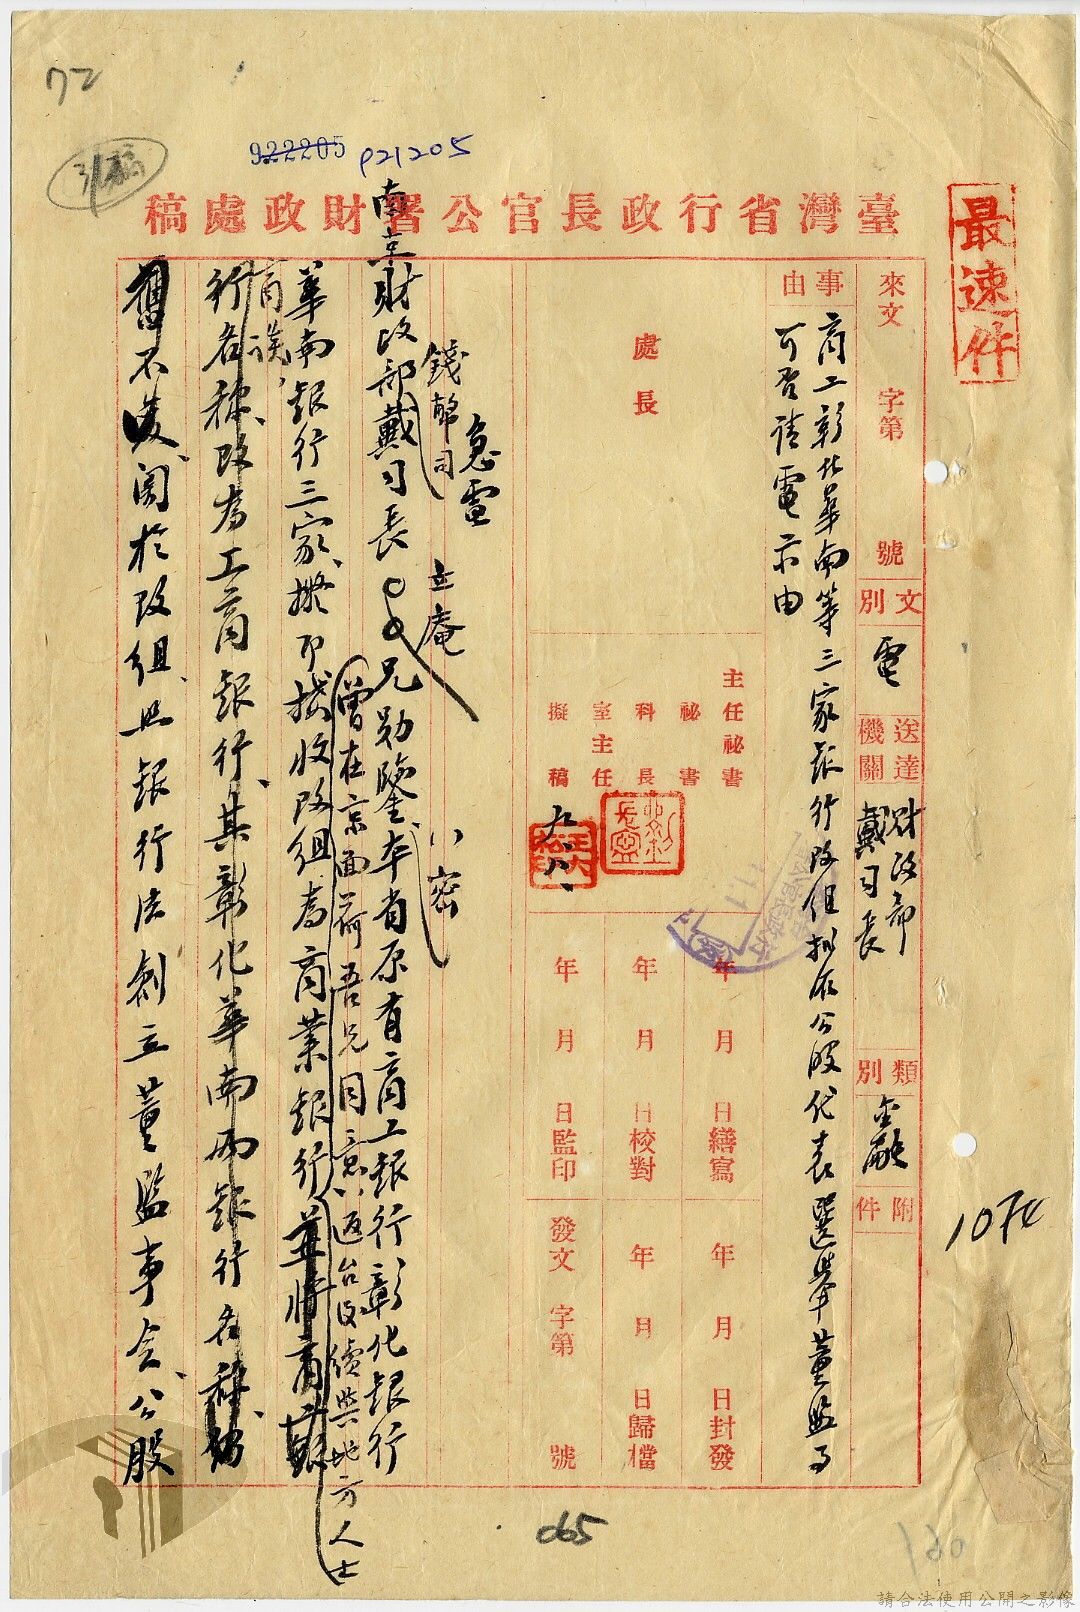 72
922205 P21205
最速件
臺灣省行政長官公署財政處稿
來文 字第 號
文別 電
送達機關 財政部戴司長
類別 金融
附件
事由 商工彰化華南等三家銀行改組擬依公股代表選舉董監事
可否請電示由
處長
主任秘書
秘書
科長
室主任
擬稿 九、八、
年 月 日繕寫
年 月 日校對
年 月 日監印
年 月 日封發
年 月 日歸檔
發文 字第 號
急電
錢幣司 立庵 密
南京財政部戴司長 兄勛鑒本省原有商工銀行彰化銀行
曾在京面荷吾兄同意返台後續與地方人士
商談
華南銀行三家擬即接收改組為商業銀行並將商工銀
行名稱改為工商銀行其彰化華南兩銀行名稱仍
舊不改關於改組照銀行法創立董監事會公股
1074
065
160
請合法使用公開之影像